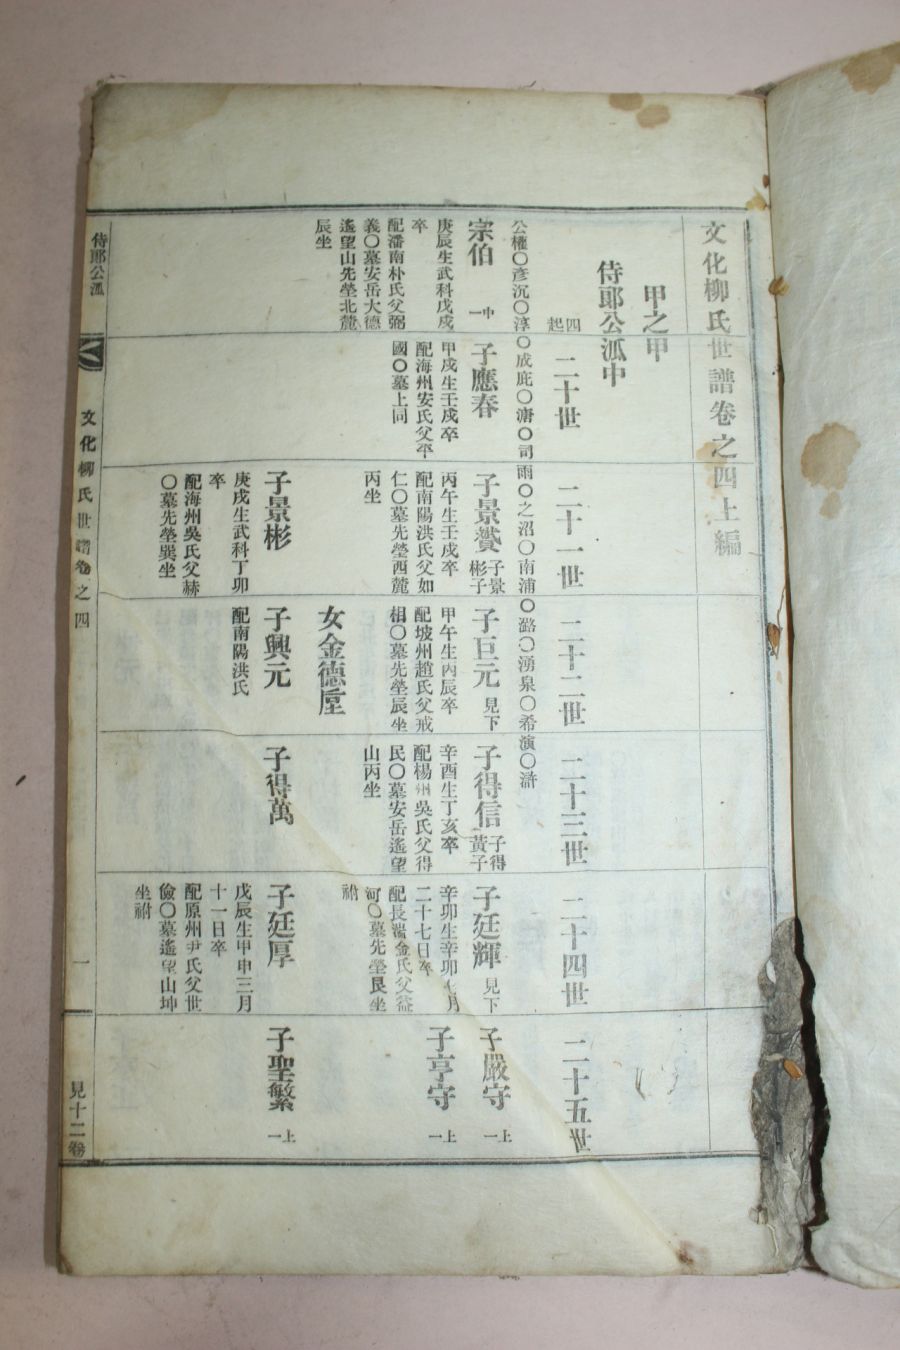 文化柳氏世譜卷之四上編
甲之甲
侍郎公泒中
四起
二十世
二十一世
二十二世
二十三世
二十四世
二十五世
公權〇彥沉〇淳〇成庇〇溏〇司雨〇之沼〇南浦〇潞〇湧泉〇希演〇滸
宗伯
中一
庚辰生武科戊戌
卒
配潘南朴氏父弼
義〇墓安岳大德
遙望山先塋北麓
辰坐
子應春
甲戌生壬戌卒
配海州安氏父平
國〇墓上同
子景贊
子景
彬子
丙午生壬戌卒
配南陽洪氏父如
仁〇墓先塋西麓
丙坐
子景彬
庚戌生武科丁卯
卒
配海州吳氏父赫
〇墓先塋巽坐
子巨元
見下
甲午生丙辰卒
配坡州趙氏父戒
相〇墓先塋辰坐
女金德垕
子興元
配南陽洪氏
子得信
子得
黃子
辛酉生丁亥卒
配楊州吳氏父得
民〇墓安岳遙望
山丙坐
子得萬
子廷輝
見下
辛卯生辛卯七月
二十七日卒
配長湍金氏父益
河〇墓先塋艮坐
祔
子廷厚
戊辰生甲申三月
十一日卒
配原州尹氏父世
儉〇墓遙望山坤
坐祔
子嚴守
上一
子亨守
上一
子聖繁
上一
侍郎公泒
文化柳氏世譜卷之四
一
見十二卷